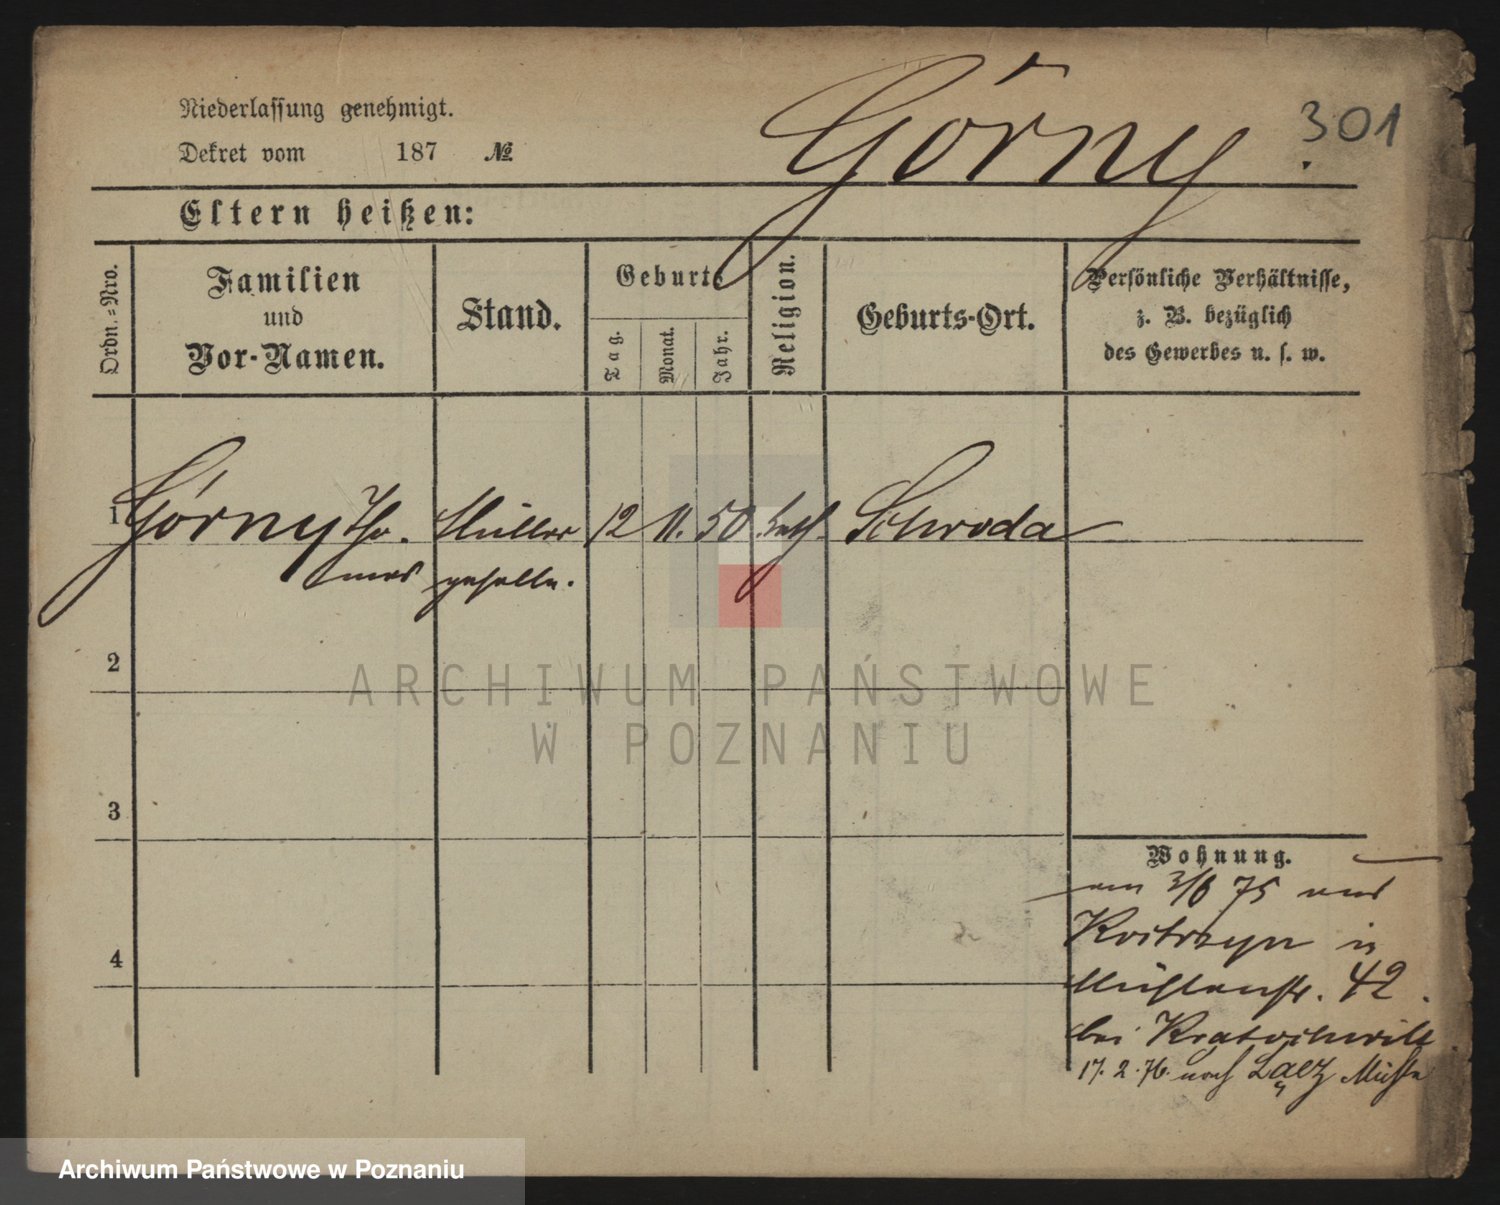 Niederlassung genehmigt.
Dekret vom 187 №
Górny.
301
Eltern heißen:
Ordn.=Nro.
Familien
und
Vor-Namen.
Stand.
Geburts
Tag.
Monat.
Jahr.
Religion.
Geburts-Ort.
Persönliche Verhältnisse,
z. B. bezüglich
des Gewerbes u. s. w.
1 Górny Tho- Müller 12 11. 50 kath. Schroda
mas geselle.
2
ARCHIWUM PAŃSTWOWE
W POZNANIU
3
4
Wohnung.
am 3/6 75 aus
Kostrzyn in
Mühlenstr. 42.
bei Kratochwill.
17. 2. 76. nach Mühle
Archiwum Państwowe w Poznaniu